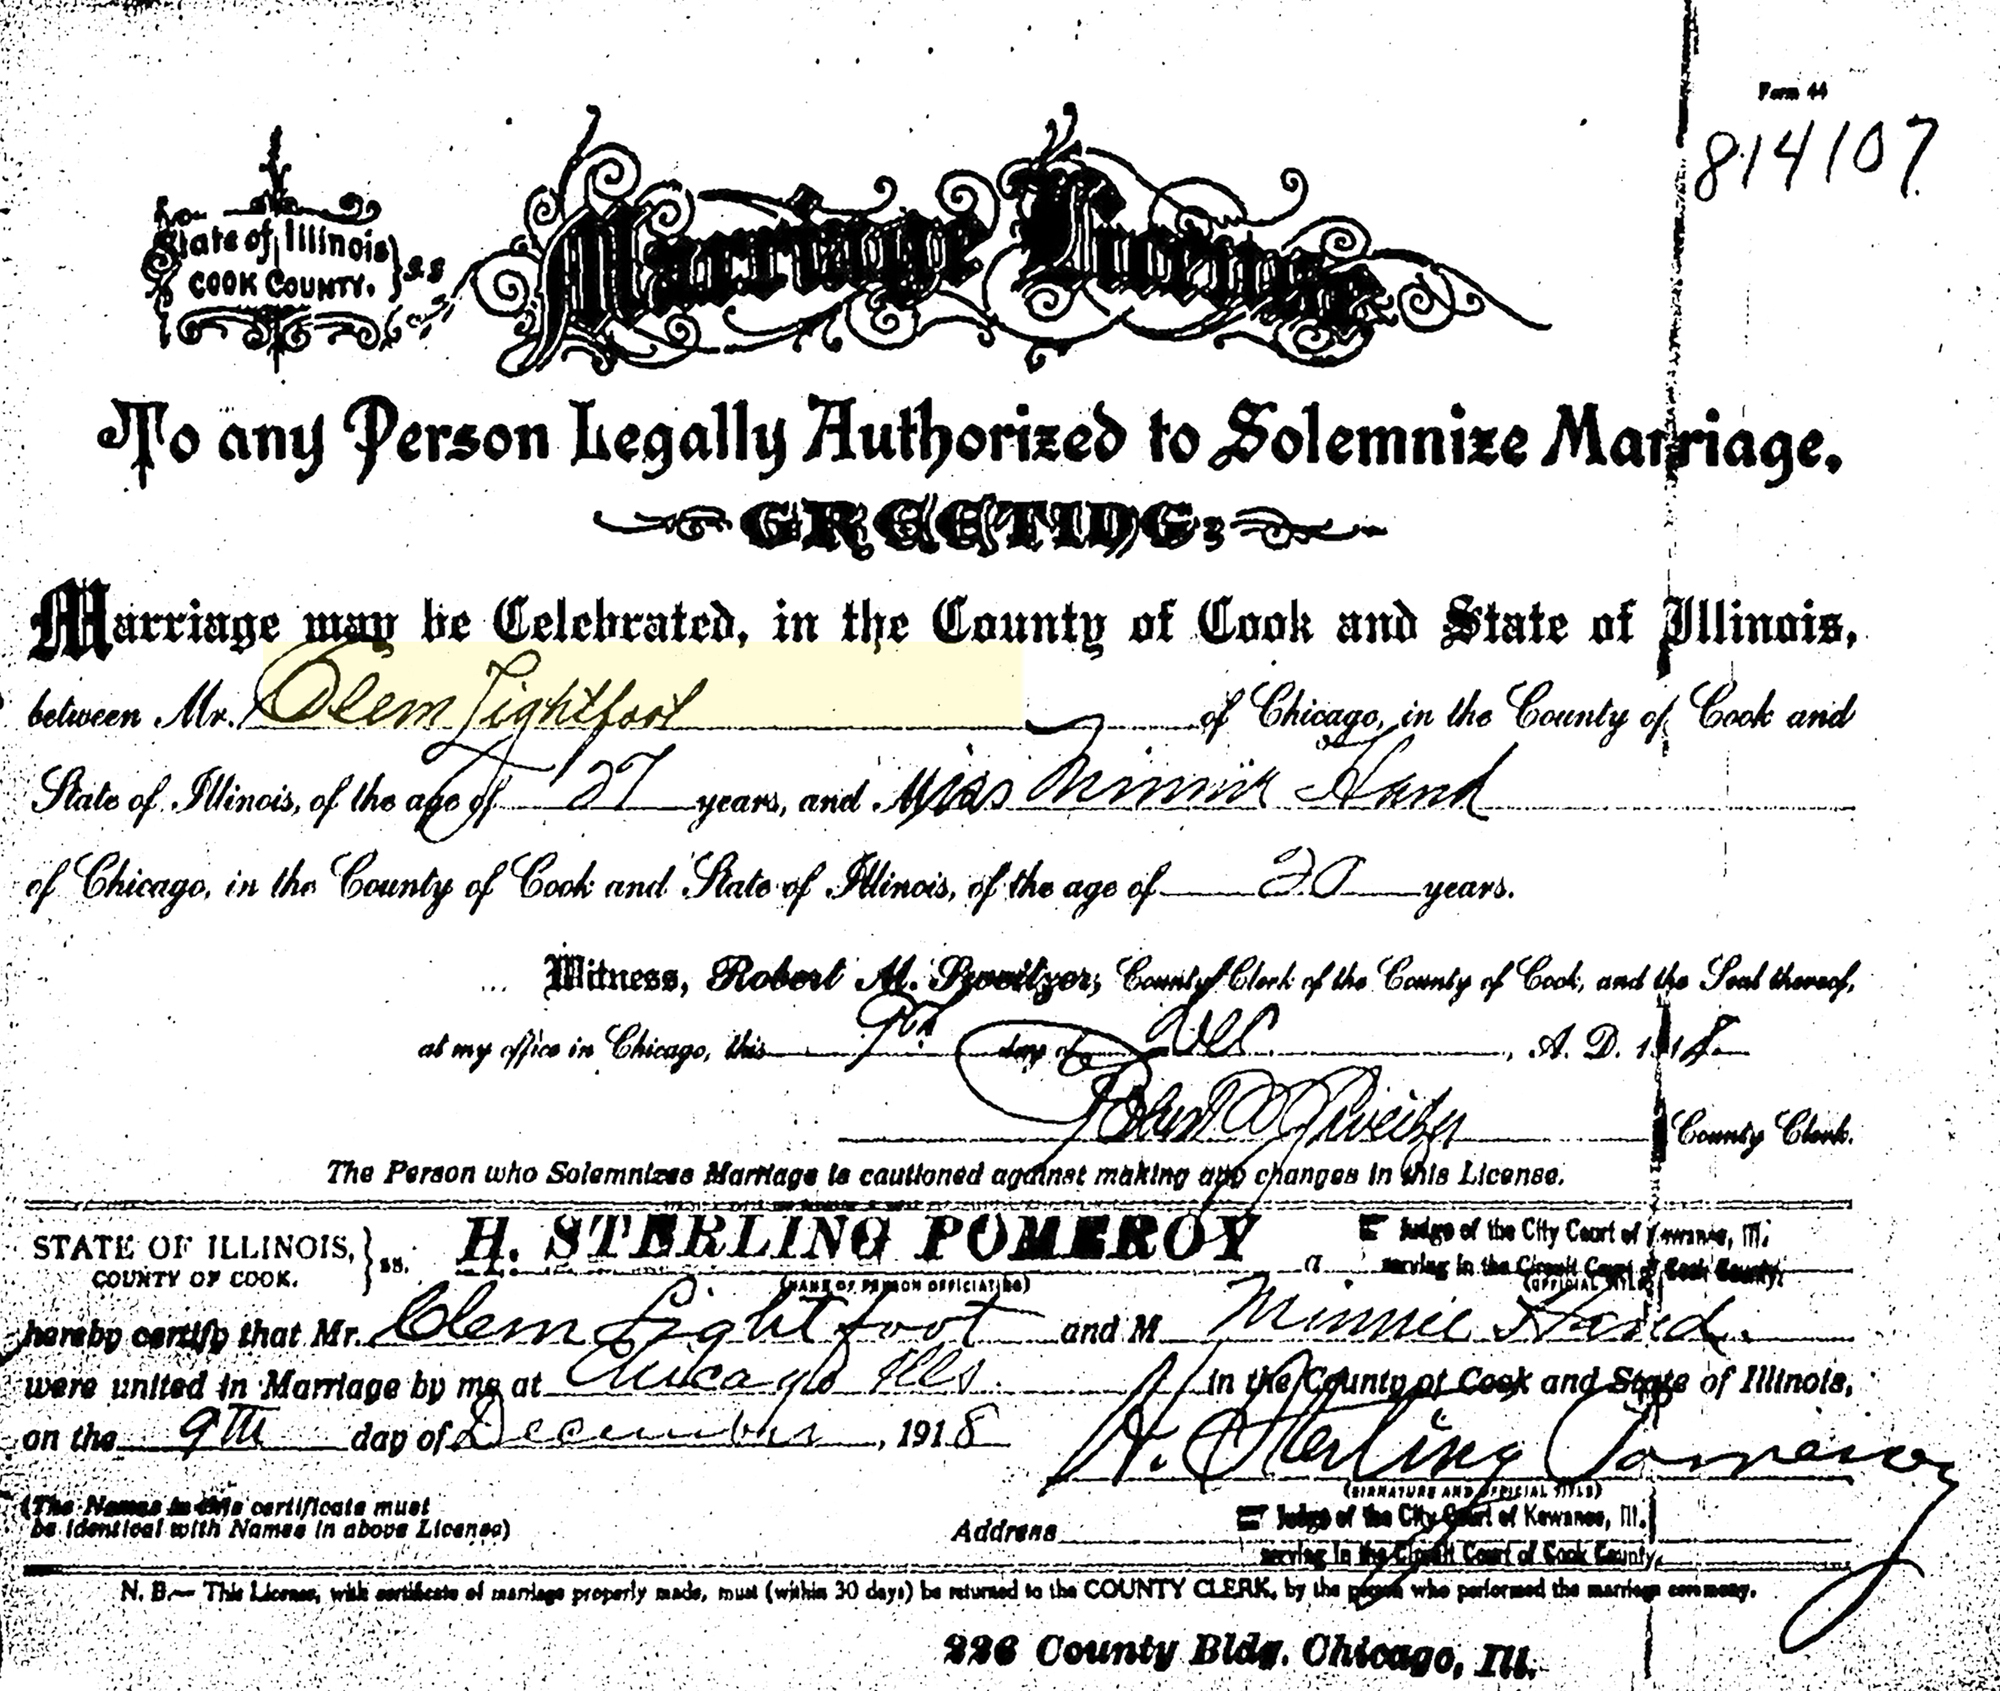 Form 44
814107
State of Illinois
COOK COUNTY. } SS
Marriage License
To any Person Legally Authorized to Solemnize Marriage,
GREETING:
Marriage may be Celebrated, in the County of Cook and State of Illinois,
between Mr. Clem Lightfoot of Chicago, in the County of Cook and
State of Illinois, of the age of 27 years, and Miss Minnie Hand
of Chicago, in the County of Cook and State of Illinois, of the age of 20 years.
Witness, Robert M. Sweitzer, County Clerk of the County of Cook, and the Seal thereof,
at my office in Chicago, this 9th day of Dec , A. D. 1918
Robert M Sweitzer County Clerk.
The Person who Solemnizes Marriage is cautioned against making any changes in this License.
STATE OF ILLINOIS, } ss. H. STERLING POMEROY a Judge of the City Court of Kewanee, Ill.
COUNTY OF COOK. serving in the Circuit Court of Cook County.
(NAME OF PERSON OFFICIATING) (OFFICIAL TITLE)
hereby certify that Mr. Clem Lightfoot and M Minnie Hand.
were united in Marriage by me at Chicago Ills. in the County of Cook and State of Illinois,
on the 9TH day of December , 1918
H. Sterling Pomeroy
(SIGNATURE AND OFFICIAL TITLE)
(The Names in this certificate must
be identical with Names in above License)
Address Judge of the City Court of Kewanee, Ill.
serving in the Circuit Court of Cook County.
N. B.— This License, with certificate of marriage properly made, must (within 30 days) be returned to the COUNTY CLERK, by the person who performed the marriage ceremony.
226 County Bldg. Chicago, Ill.